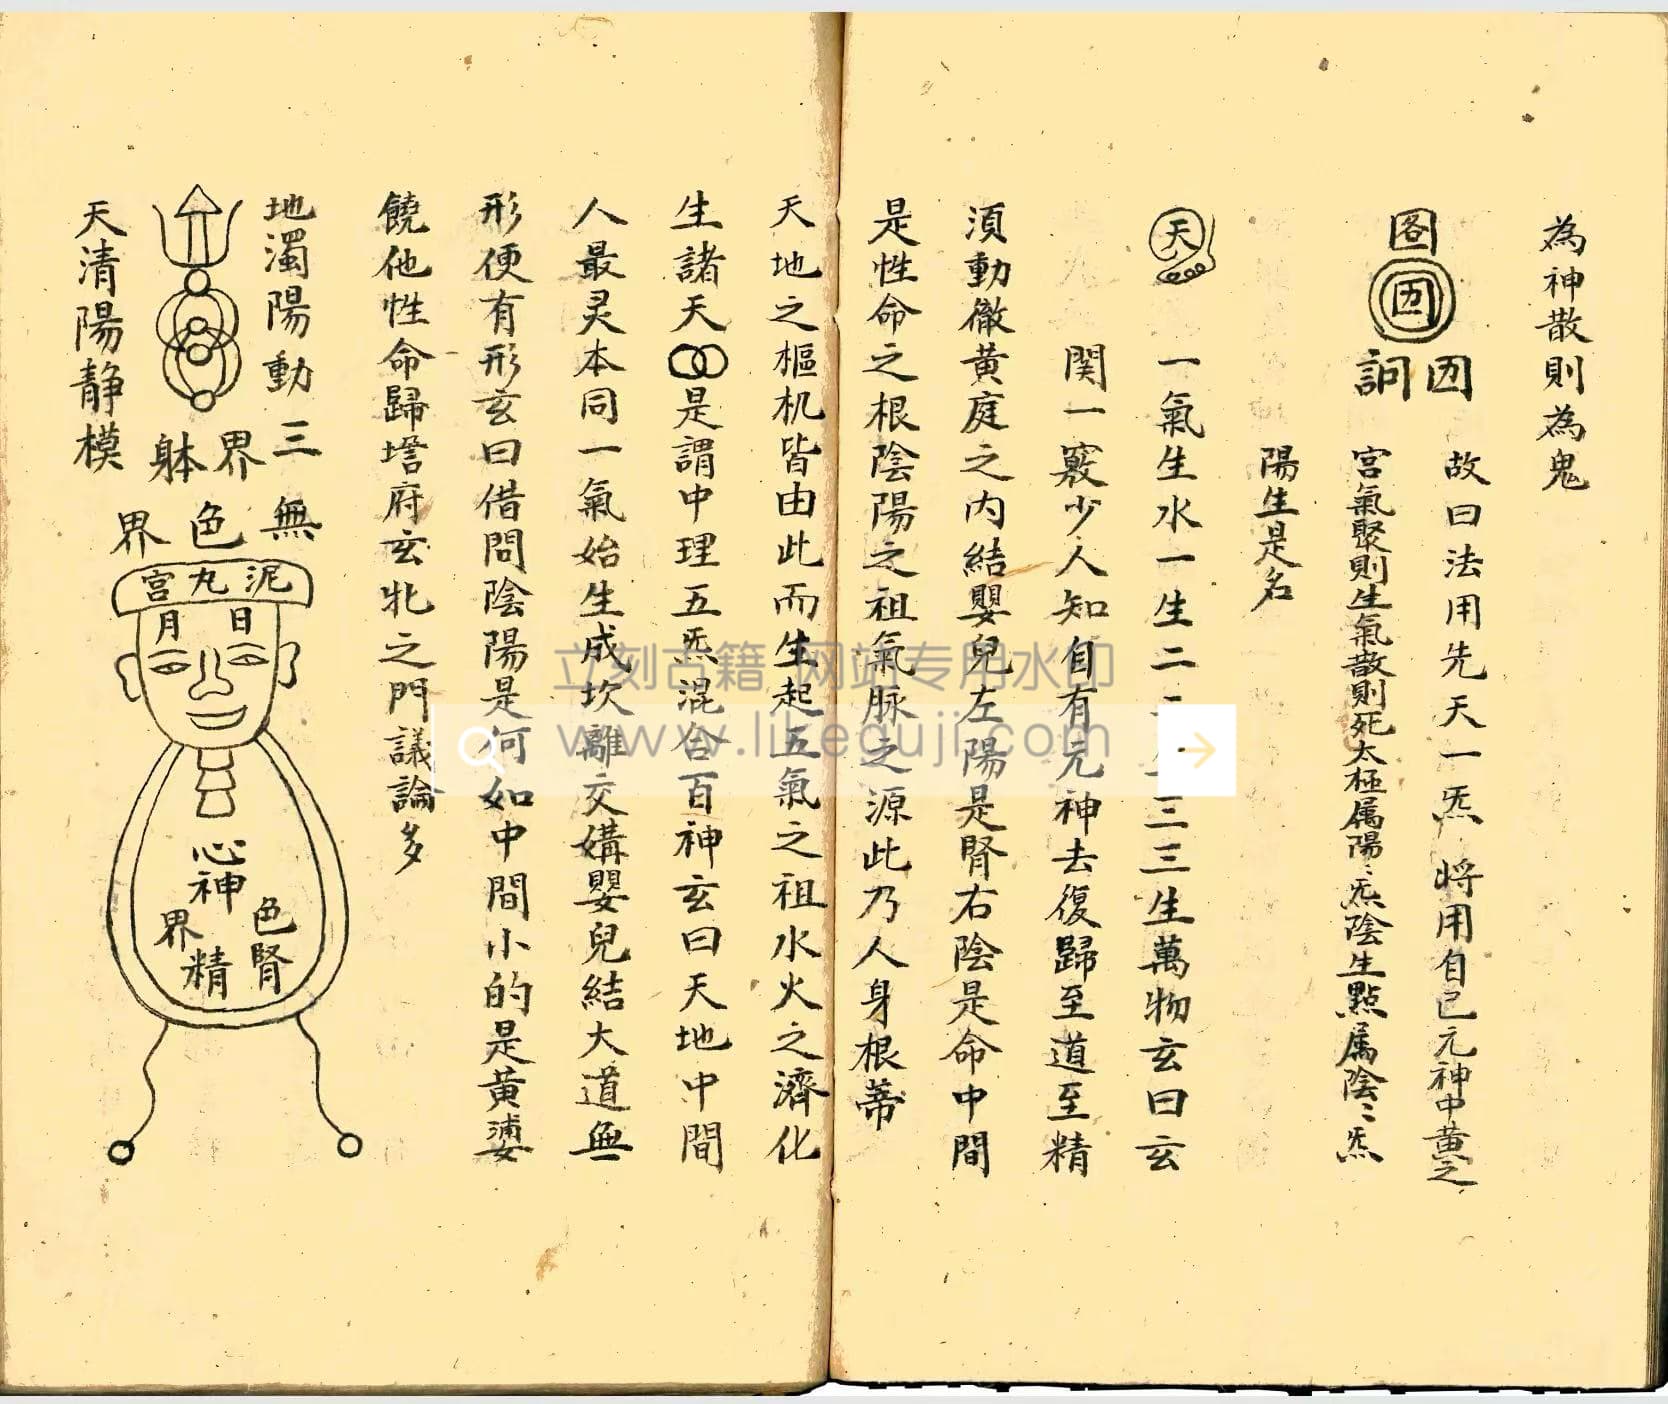 為神散則為鬼
囨
訶
故曰法用先天一炁 將用自己元神中黄之
宮氣聚則生氣散則死太極属陽〻炁陰生點属陰〻炁
陽生是名
天
一氣生水一生二二生三三生萬物玄曰玄
関一竅少人知自有元神去復歸至道至精
須動徹黄庭之内結嬰兒左陽是腎右陰是命中間
是性命之根陰陽之祖氣脉之源此乃人身根蒂
天地之樞机皆由此而生起五氣之祖水火之濟化
生諸天是謂中理五炁混合百神玄曰天地中間
人最灵本同一氣始生成坎離交媾嬰兒結大道無
形便有形玄曰借問陰陽是何如中間小的是黄婆
饒他性命歸府玄牝之門議論多
地濁陽動三
界
躰
天清陽静模
無色界
泥丸宮
日月
心神
色界
腎精
立刻古籍 网站专用水印
www.likeguji.com